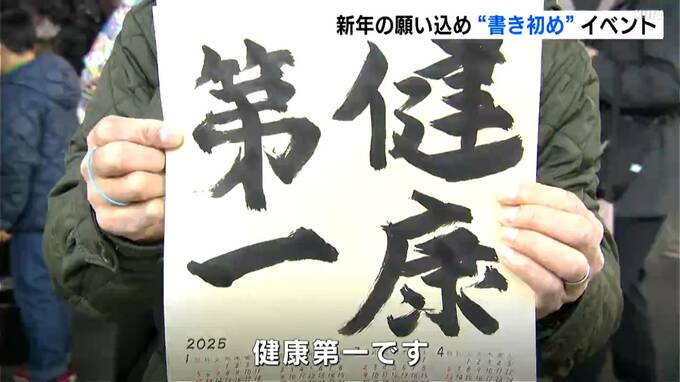 新年の願い込め“書き初め”イベント
健康
第一
2025
1
4
健康第一です